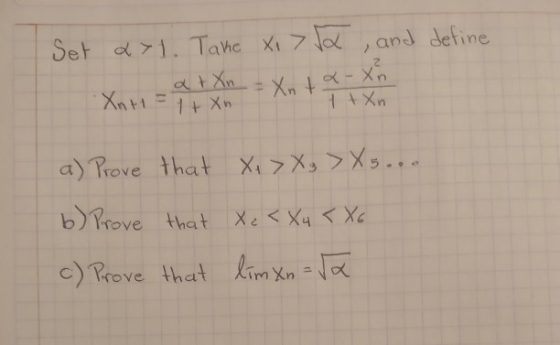 Set α > 1. Take x₁ > √α, and define
xₙ₊₁ = (α + xₙ)/(1 + xₙ) = xₙ + (α - xₙ²)/(1 + xₙ)
a) Prove that x₁ > x₃ > x₅...
b) Prove that x₂ < x₄ < x₆
c) Prove that lim xₙ = √α